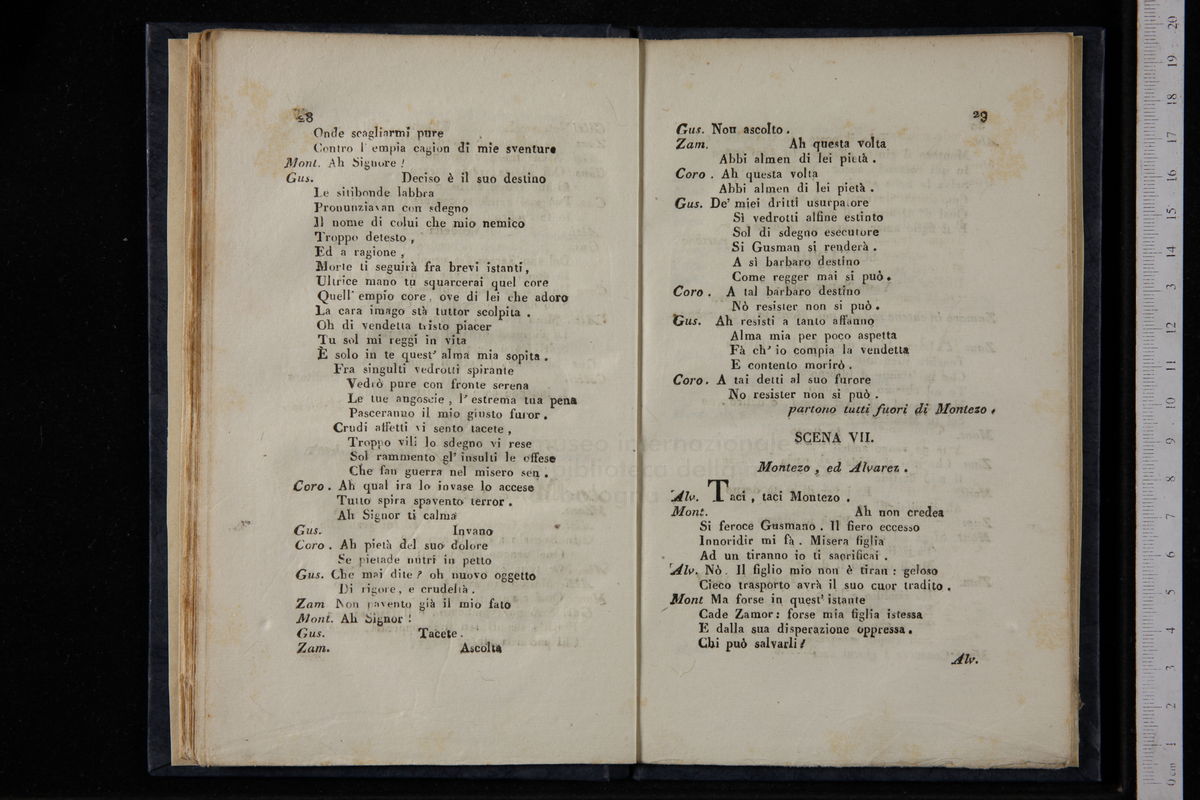 28
Onde scagliarmi pure
Contro l' empia cagion di mie sventure
Mont. Ah Signore !
Gus. Deciso è il suo destino
Le sitibonde labbra
Pronunziavan con sdegno
Il nome di colui che mio nemico
Troppo detesto ,
Ed a ragione ,
Morte ti seguirà fra brevi istanti ,
Ultrice mano tu squarcerai quel core
Quell' empio core , ove di lei che adoro
La cara imago stà tuttor scolpita .
Oh di vendetta tristo piacer
Tu sol mi reggi in vita
È solo in te quest' alma mia sopita .
Fra singulti vedrotti spirante
Vedrò pure con fronte serena
Le tue angoscie , l' estrema tua pena
Pasceranno il mio giusto furor .
Crudi affetti vi sento tacete ,
Troppo vili lo sdegno vi rese
Sol rammento gl' insulti le offese
Che fan guerra nel misero sen .
Coro . Ah qual ira lo invase lo accese
Tutto spira spavento terror .
Ah Signor ti calma
Gus. Invano
Coro . Ah pietà del suo dolore
Se pietade nutri in petto
Gus. Che mai dite ? oh nuovo oggetto
Di rigore , e crudeltà .
Zam Non pavento già il mio fato
Mont. Ah Signor !
Gus. Tacete .
Zam. Ascolta
29
Gus. Non ascolto .
Zam. Ah questa volta
Abbi almen di lei pietà .
Coro . Ah questa volta
Abbi almen di lei pietà .
Gus. De' miei dritti usurpatore
Sì vedrotti alfine estinto
Sol di sdegno esecutore
Si Gusman si renderà .
A sì barbaro destino
Come regger mai si può .
Coro . A tal barbaro destino
Nò resister non si può .
Gus. Ah resisti a tanto affanno
Alma mia per poco aspetta
Fà ch' io compia la vendetta
E contento morirò .
Coro . A tai detti al suo furore
No resister non si può .
partono tutti fuori di Montezo .
SCENA VII.
Montezo , ed Alvarez .
Alv. Taci , taci Montezo .
Mont. Ah non credea
Si feroce Gusmano . Il fiero eccesso
Innoridir mi fà . Misera figlia
Ad un tiranno io ti sacrificai .
Alv. Nò . Il figlio mio non è tiran : geloso
Cieco trasporto avrà il suo cuor tradito .
Mont Ma forse in quest' istante
Cade Zamor : forse mia figlia istessa
E dalla sua disperazione oppressa .
Chi può salvarli !
Alv.
museo internazionale
biblioteca della
bologna
0 cm 1 2 3 4 5 6 7 8 9 10 11 12 13 14 15 16 17 18 19 20